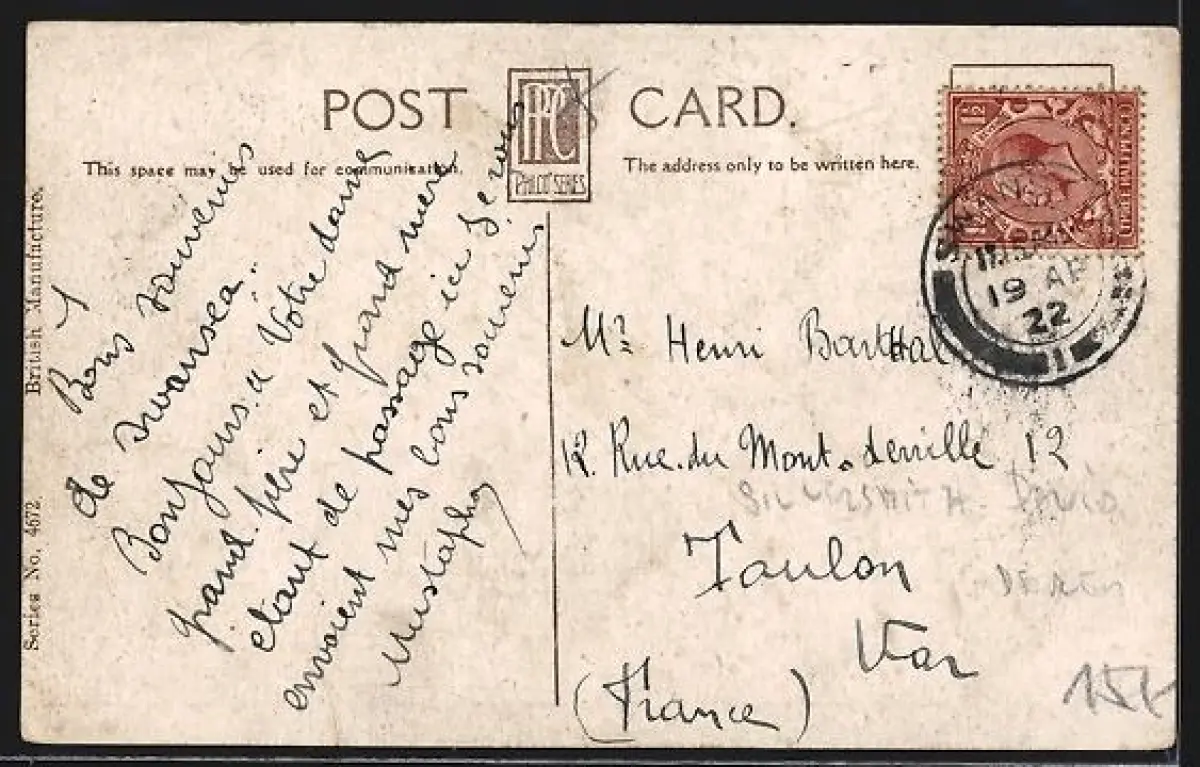 POST CARD.
PPC
"PHILCO" SERIES
This space may be used for communication.
The address only to be written here.
British Manufacture.
Series No. 4672
Bons souvenirs
de Swansea.
Bonjours. a Votre dame
grand. père et grand mere
étant de passage ici je vous
envoient mes bons souvenirs
Mustapha
THREE HALFPENCE
1½
19 AP
22
1
Mr Henri Barthal
12. Rue. du Mont. denville 12
Toulon
Var
(France)
SILVERSMITH
15